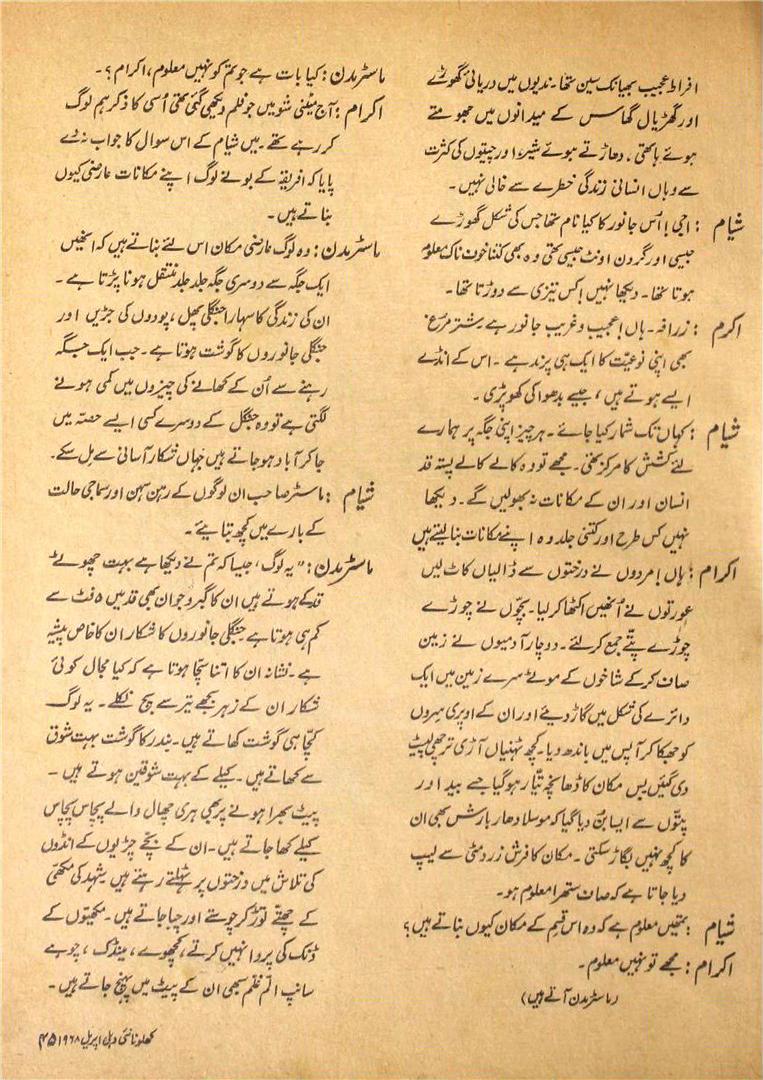 افراط عجیب بھیانک سین تھا۔ ندیوں میں دریائی گھوڑے
اور گھڑیال گھاس کے میدانوں میں جھومتے
ہوئے ہاتھی، دھاڑتے ہوئے شیر، اور چیتوں کی کثرت
سے وہاں انسانی زندگی خطرے سے خالی نہیں۔
شیام : اجی! اُس جانور کا کیا نام تھا جس کی شکل گھوڑے
جیسی اور گردن اونٹ جیسی تھی وہ بھی کتنا خوفناک معلوم
ہوتا تھا۔ دیکھا نہیں! کس تیزی سے دوڑتا تھا۔
اکرم : زرافہ۔ ہاں! عجیب و غریب جانور ہے۔ شتر مرغ
بھی اپنی نوعیت کا ایک ہی پرند ہے۔ اس کے انڈے
ایسے ہوتے ہیں، جیسے بدھوا کی کھوپڑی۔
شیام : کہاں تک شمار کیا جائے۔ ہر چیز اپنی جگہ پر ہمارے
لئے کشش کا مرکز تھی۔ مجھے تو وہ کالے کالے پستہ قد
انسان اور ان کے مکانات نہ بھولیں گے۔ دیکھا
نہیں کس طرح اور کتنی جلد وہ اپنے مکانات بنا لیتے ہیں
اکرام : ہاں! مردوں نے درختوں سے ڈالیاں کاٹ لیں
عورتوں نے اُنھیں اکٹھا کر لیا۔ بچّوں نے چوڑے
چوڑے پتّے جمع کر لئے۔ دو چار آدمیوں نے زمین
صاف کر کے شاخوں کے موٹے سرے زمین میں ایک
دائرے کی شکل میں گاڑ دیئے اور ان کے اوپری سِروں
کو جھکا کر آپس میں باندھ دیا۔ کچھ ٹہنیاں آڑی ترچھی لپیٹ
دی گئیں بس مکان کا ڈھانچہ تیّار ہو گیا جسے بید اور
پتّوں سے ایسا بُن دیا گیا کہ موسلا دھار بارش بھی ان
کا کچھ نہیں بگاڑ سکتی۔ مکان کا فرش زرد مٹی سے لیپ
دیا جاتا ہے کہ صاف ستھرا معلوم ہو۔
شیام : تمھیں معلوم ہے کہ وہ اس قسم کے مکان کیوں بناتے ہیں؟
اکرام : مجھے تو نہیں معلوم۔
(ماسٹر مدن آتے ہیں)
ماسٹر مدن : کیا بات ہے جو تم کو نہیں معلوم، اکرام؟۔
اکرام : آج میٹنی شو میں جو فلم دیکھی گئی تھی اُسی کا ذکر ہم لوگ
کر رہے تھے۔ میں شیام کے اس سوال کا جواب نہ دے
پایا کہ افریقہ کے بونے لوگ اپنے مکانات عارضی کیوں
بناتے ہیں۔
ماسٹر مدن : وہ لوگ عارضی مکان اس لئے بناتے ہیں کہ انھیں
ایک جگہ سے دوسری جگہ جلد جلد منتقل ہونا پڑتا ہے۔
ان کی زندگی کا سہارا جنگلی پھل، پودوں کی جڑیں اور
جنگلی جانوروں کا گوشت ہوتا ہے۔ جب ایک جگہ
رہنے سے اُن کے کھانے کی چیزوں میں کمی ہونے
لگتی ہے تو وہ جنگل کے دوسرے کسی ایسے حصّہ میں
جا کر آباد ہو جاتے ہیں جہاں شکار آسانی سے مل سکے۔
شیام : ماسٹر صاحب ان لوگوں کے رہن سہن اور سماجی حالت
کے بارے میں کچھ بتایئے۔
ماسٹر مدن : "یہ لوگ، جیسا کہ تم نے دیکھا ہے بہت چھوٹے
قد کے ہوتے ہیں ان کا گبرو جوان بھی قد میں ۵ فٹ سے
کم ہی ہوتا ہے جنگلی جانوروں کا شکار ان کا خاص پیشہ
ہے۔ نشانہ ان کا اتنا سچا ہوتا ہے کہ کیا مجال کوئی
شکار ان کے زہر بجھے تیر سے بچ نکلے۔ یہ لوگ
کچّا ہی گوشت کھاتے ہیں۔ بندر کا گوشت بہت شوق
سے کھاتے ہیں۔ کیلے کے بہت شوقین ہوتے ہیں۔
پیٹ بھرا ہونے پر بھی ہری چھال والے پچاس پچاس
کیلے کھا جاتے ہیں۔ ان کے بچّے چڑیوں کے انڈوں
کی تلاش میں درختوں پر ٹہلتے رہتے ہیں شہد کی مکھّی
کے چھتّے توڑ کر چوستے اور چبا جاتے ہیں۔ مکھیوں کے
ڈنک کی پروا نہیں کرتے، کچھوے، مینڈک، چوہے
سانپ الّم غلّم سبھی ان کے پیٹ میں پہنچ جاتے ہیں۔
کھلونا نئی دہلی اپریل ۱۹۶۸ ۴۵